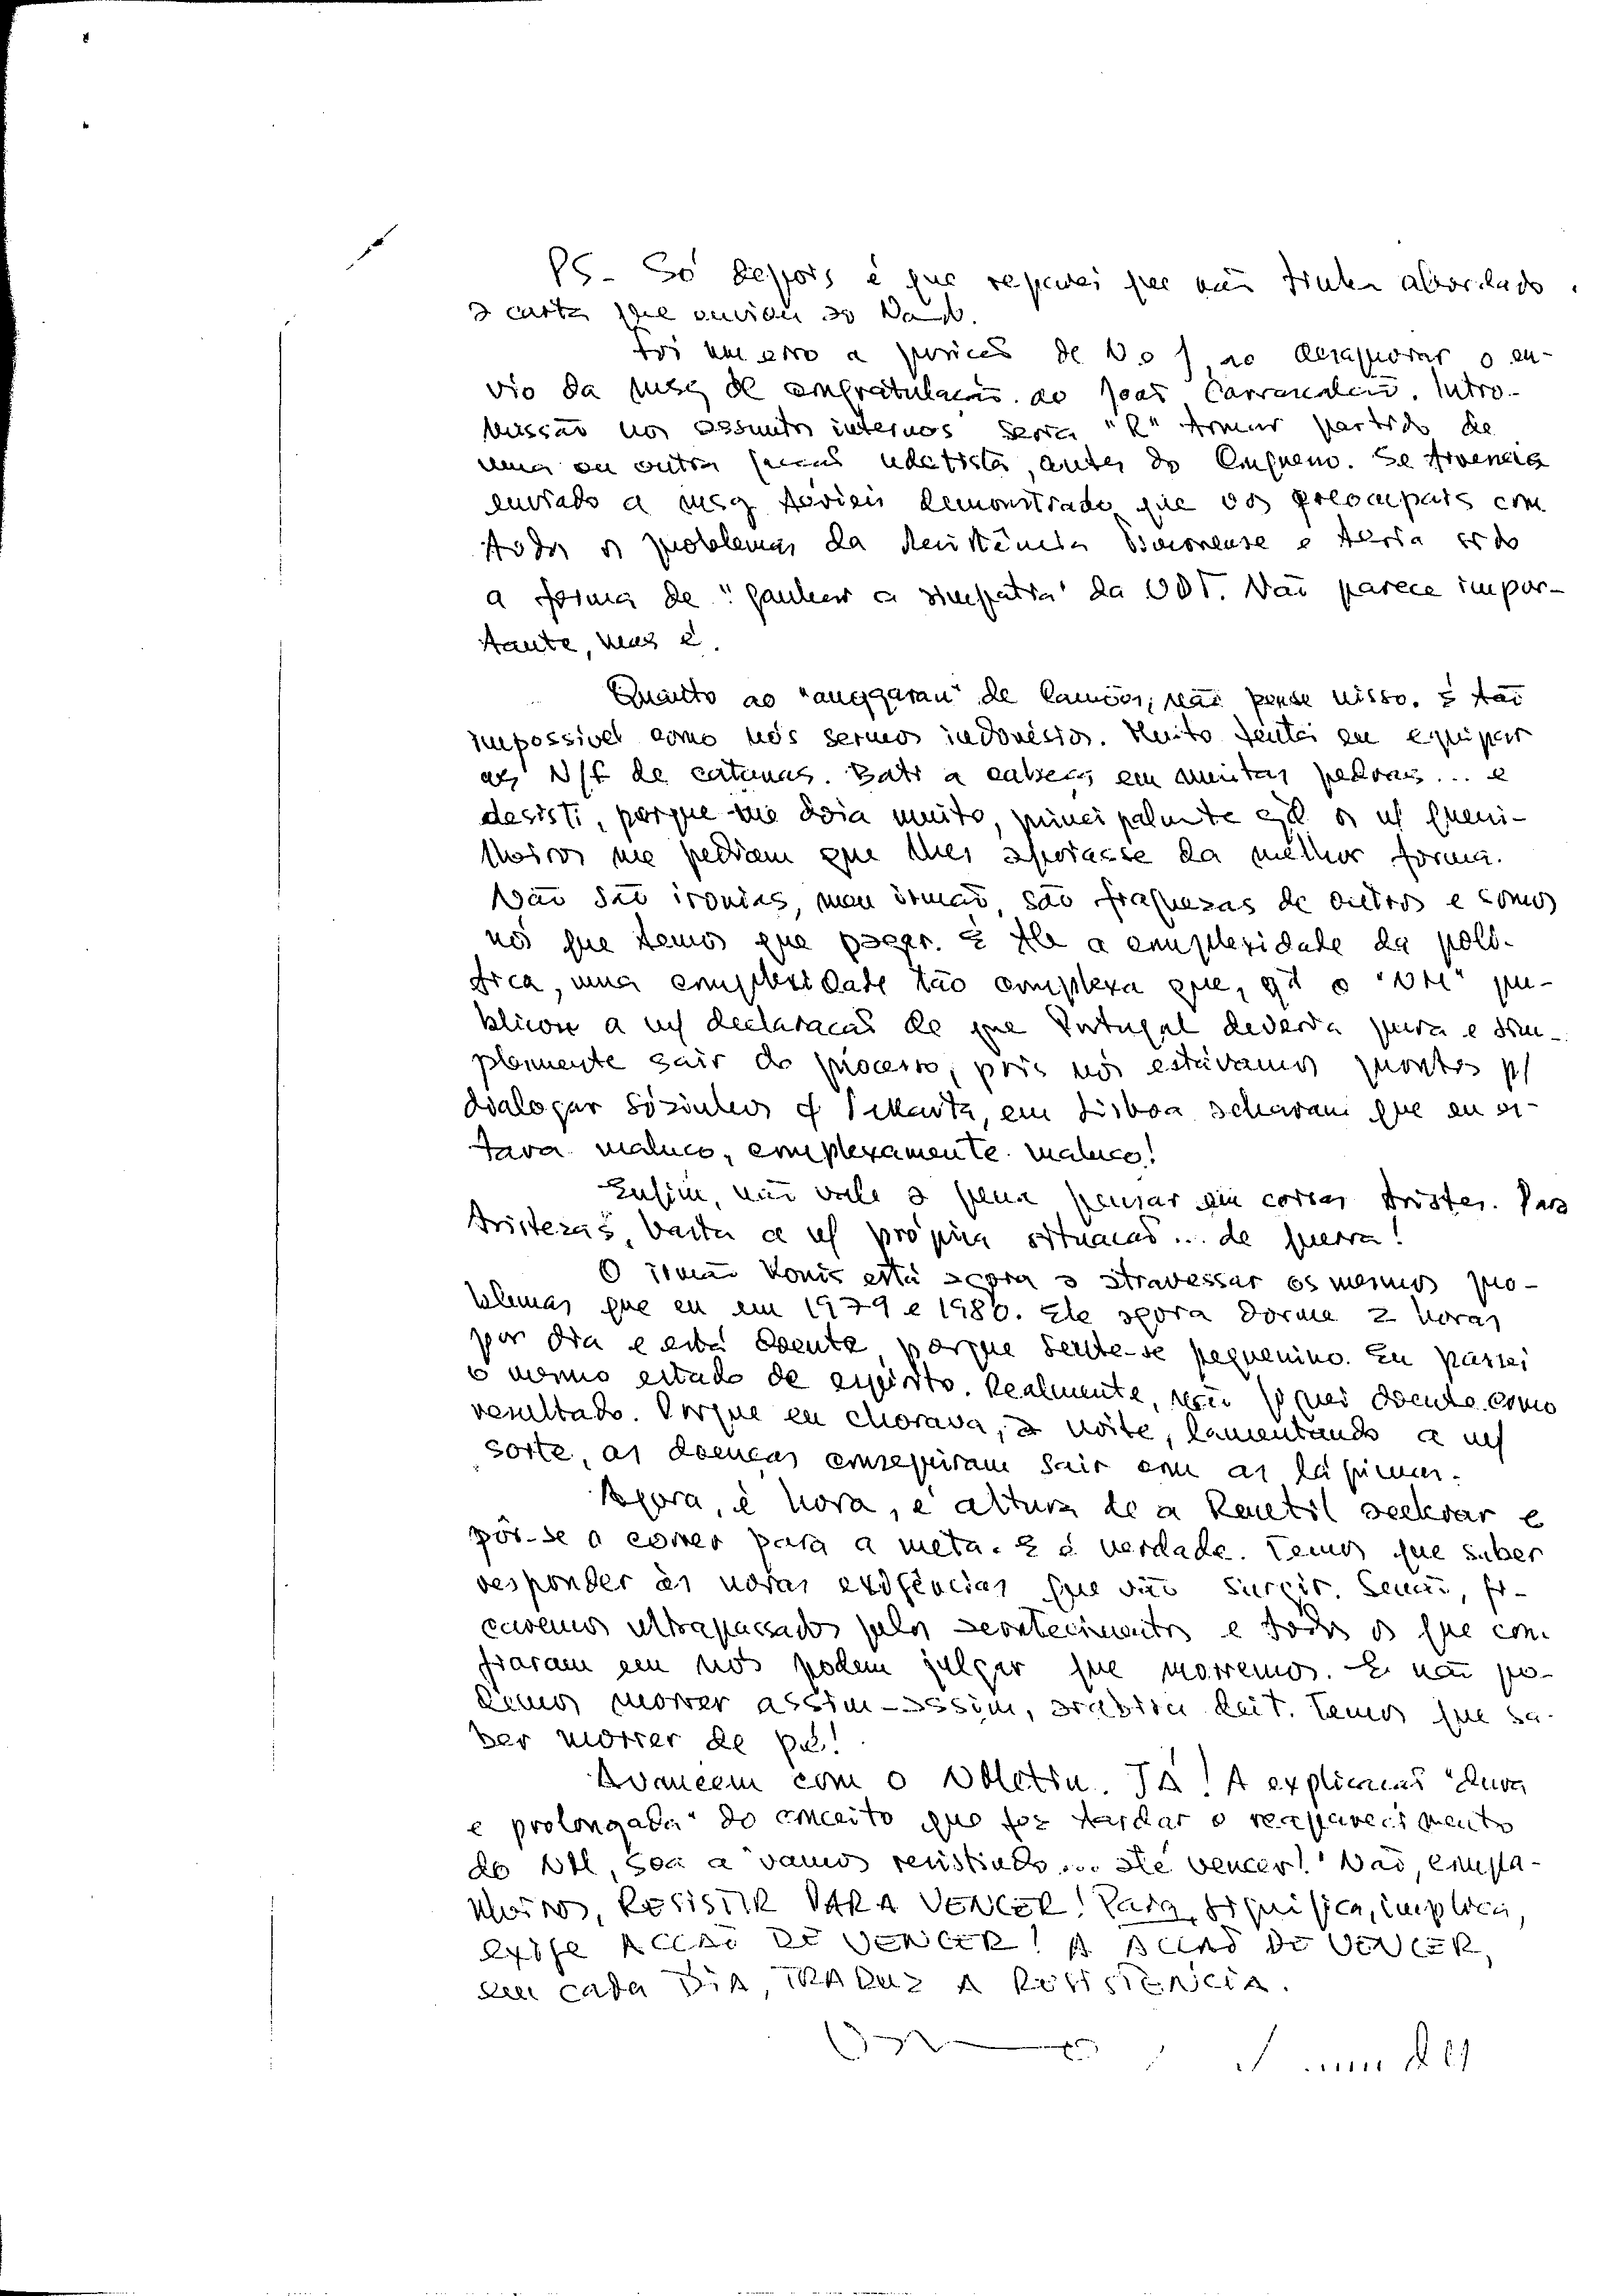 PS - Só depois é que reparei que não tinha abordado
a carta que enviou ao
Foi um erro a posição de vos, ao desaprovar o en-
vio da msg de congratulação ao João Carrascalão. Intro-
missão nos assuntos internos seria "k" tomar partido de
uma ou outra facção udetista, antes do Congresso. Se tivessem
enviado a msg teríeis demonstrado que vos preocupais com
todos os problemas da Resistência Timorense e teria sido
a forma de "ganhar a simpatia" da UDT. Não parece impor-
tante, mas é.
Quanto ao "anggaran" de Camões, não pense nisso. É tão
impossível como nós sermos indonésios. Muito tentei eu equipar
as N/F de catanas. Bati a cabeça em muitas pedras... e
desisti, porque me doía muito, principalmente qd os n/ guerri-
lheiros me pediam que lhes apoiasse da melhor forma.
Não são ironias, meu irmão, são fraquezas de outros e somos
nós que temos que pagar. É tb a complexidade da polí-
tica, uma complexidade tão complexa que, qd o "DN" pu-
blicou a n/ declaração de que Portugal deveria pura e sim-
plesmente sair do processo, pois nós estávamos prontos p/
dialogar sózinhos c/ Jakarta, em Lisboa acharam que eu es-
tava maluco, complexamente maluco!
Enfim, não vale a pena pensar em coisas tristes. Para
tristezas, basta a n/ própria situação... de guerra!
O irmão Konis está agora a atravessar os mesmos pro-
blemas que eu em 1979 e 1980. Ele agora dorme 2 horas
por dia e está doente, porque sente-se pequenino. Eu passei
o mesmo estado de espírito. Realmente, não fiquei doente como
resultado. Porque eu chorava, à noite, lamentando a n/
sorte, as doenças conseguiram sair com as lágrimas.
Agora, é hora, é altura de a Renetil acelerar e
pôr-se a correr para a meta. E é verdade. Temos que saber
responder às novas exigências que vão surgir. Senão, fi-
caremos ultrapassados pelos acontecimentos e todos os que con-
fiaram em nós podem julgar que morremos. E não po-
demos morrer assim-assim, arabiru deit. Temos que sa-
ber morrer de pé!
Avancem com o Boletin. JÁ! A explicação "dura
e prolongada" do conceito que fez tardar o reaparecimento
do Ntl, soa a "vamos resistindo... até vencer!" Não, compa-
nheiros, RESISTIR PARA VENCER! Para, significa, implica,
exige ACÇÃO DE VENCER! A ACÇÃO DE VENCER,
em cada DIA, TRADUZ A RESISTÊNCIA.